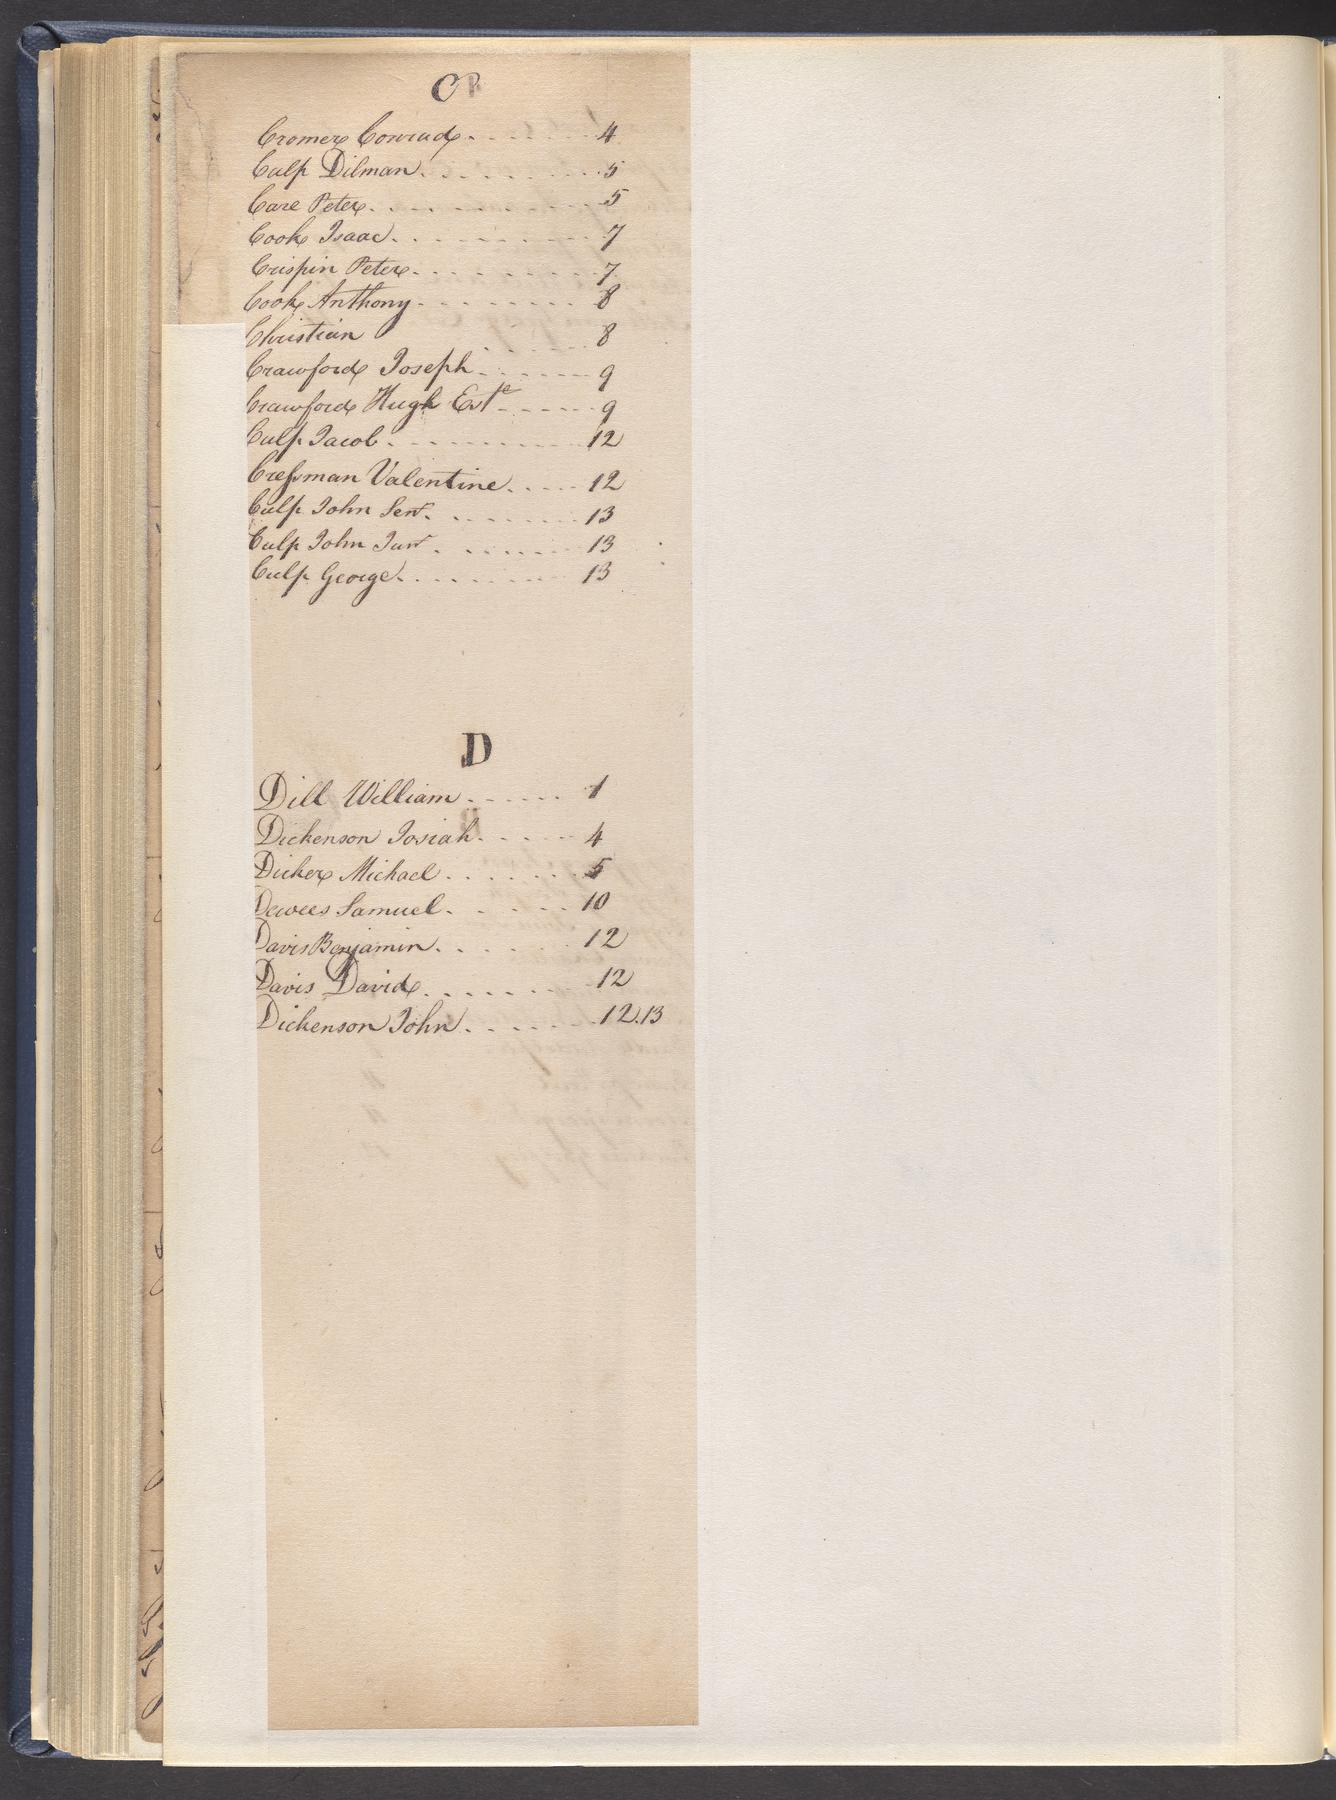 C
Cromer Conrad. - - - - - - 4
Culp Dilman. . . . . . . . . 5
Care Peter. . . . . . . . . . 5
Cook Isaac. . . . . . . . . 7
Crispin Peter. . . . . . . . 7
Cook Anthony. . . . . . . . 8
Christian . . . . . . 8
Crawford Joseph. . . . . . . 9
Crawford Hugh Est.e - - - - - 9
Culp Jacob. . . . . . . . . . 12
Cressman Valentine. . . . . 12
Culp John Senr. . . . . . . . 13
Culp John Junr. . . . . . . . 13
Culp George. . . . . . . . . 13
D
Dill William. . . . . . . 1
Dickenson Josiah. . . . . . 4
Dicker Michael. . . . . . . 5
Dewees Samuel. . . . . . 10
Davis Benjamin. . . . . . 12
Davis David. . . . . . . . 12
Dickenson John. . . . . . . 12.13